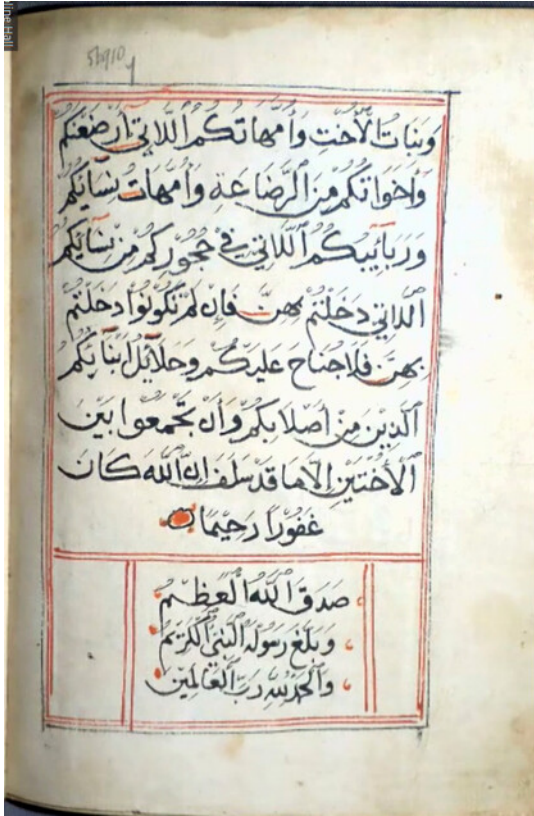 56910
وَبَنَاتُ الْأُخْتِ وَأُمَّهَاتُكُمُ اللَّاتِي أَرْضَعْنَكُمْ
وَأَخَوَاتُكُمْ مِنَ الرَّضَاعَةِ وَأُمَّهَاتُ نِسَآئِكُمْ
وَرَبَآئِبُكُمُ اللَّاتِي فِي حُجُورِكُمْ مِنْ نِسَآئِكُمُ
اللَّاتِي دَخَلْتُمْ بِهِنَّ فَإِنْ لَمْ تَكُونُوا دَخَلْتُمْ
بِهِنَّ فَلَا جُنَاحَ عَلَيْكُمْ وَحَلَآئِلُ أَبْنَآئِكُمُ
الَّذِينَ مِنْ أَصْلَابِكُمْ وَأَنْ تَجْمَعُوا بَيْنَ
الْأُخْتَيْنِ إِلَّا مَا قَدْ سَلَفَ إِنَّ اللَّهَ كَانَ
غَفُورًا رَحِيمًا
صَدَقَ اللَّهُ الْعَظِيمُ
وَبَلَّغَ رَسُولُهُ النَّبِيُّ الْكَرِيمُ
وَالْحَمْدُ لِلَّهِ رَبِّ الْعَالَمِينَ